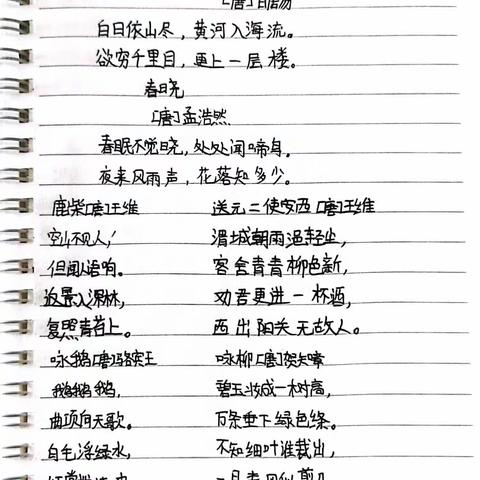 白日依山尽，黄河入海流。
欲穷千里目，更上一层楼。
春晓
[唐]孟浩然
春眠不觉晓，处处闻啼鸟。
夜来风雨声，花落知多少。
鹿柴[唐]王维 送元二使安西[唐]王维
空山不见人， 渭城朝雨浥轻尘，
但闻人语响。 客舍青青柳色新，
返景入深林， 劝君更进一杯酒，
复照青苔上。 西出阳关无故人。
咏鹅[唐]骆宾王 咏柳[唐]贺知章
鹅鹅鹅， 碧玉妆成一树高，
曲项向天歌。 万条垂下绿色绦。
白毛浮绿水， 不知细叶谁裁出，
二月春风似剪刀